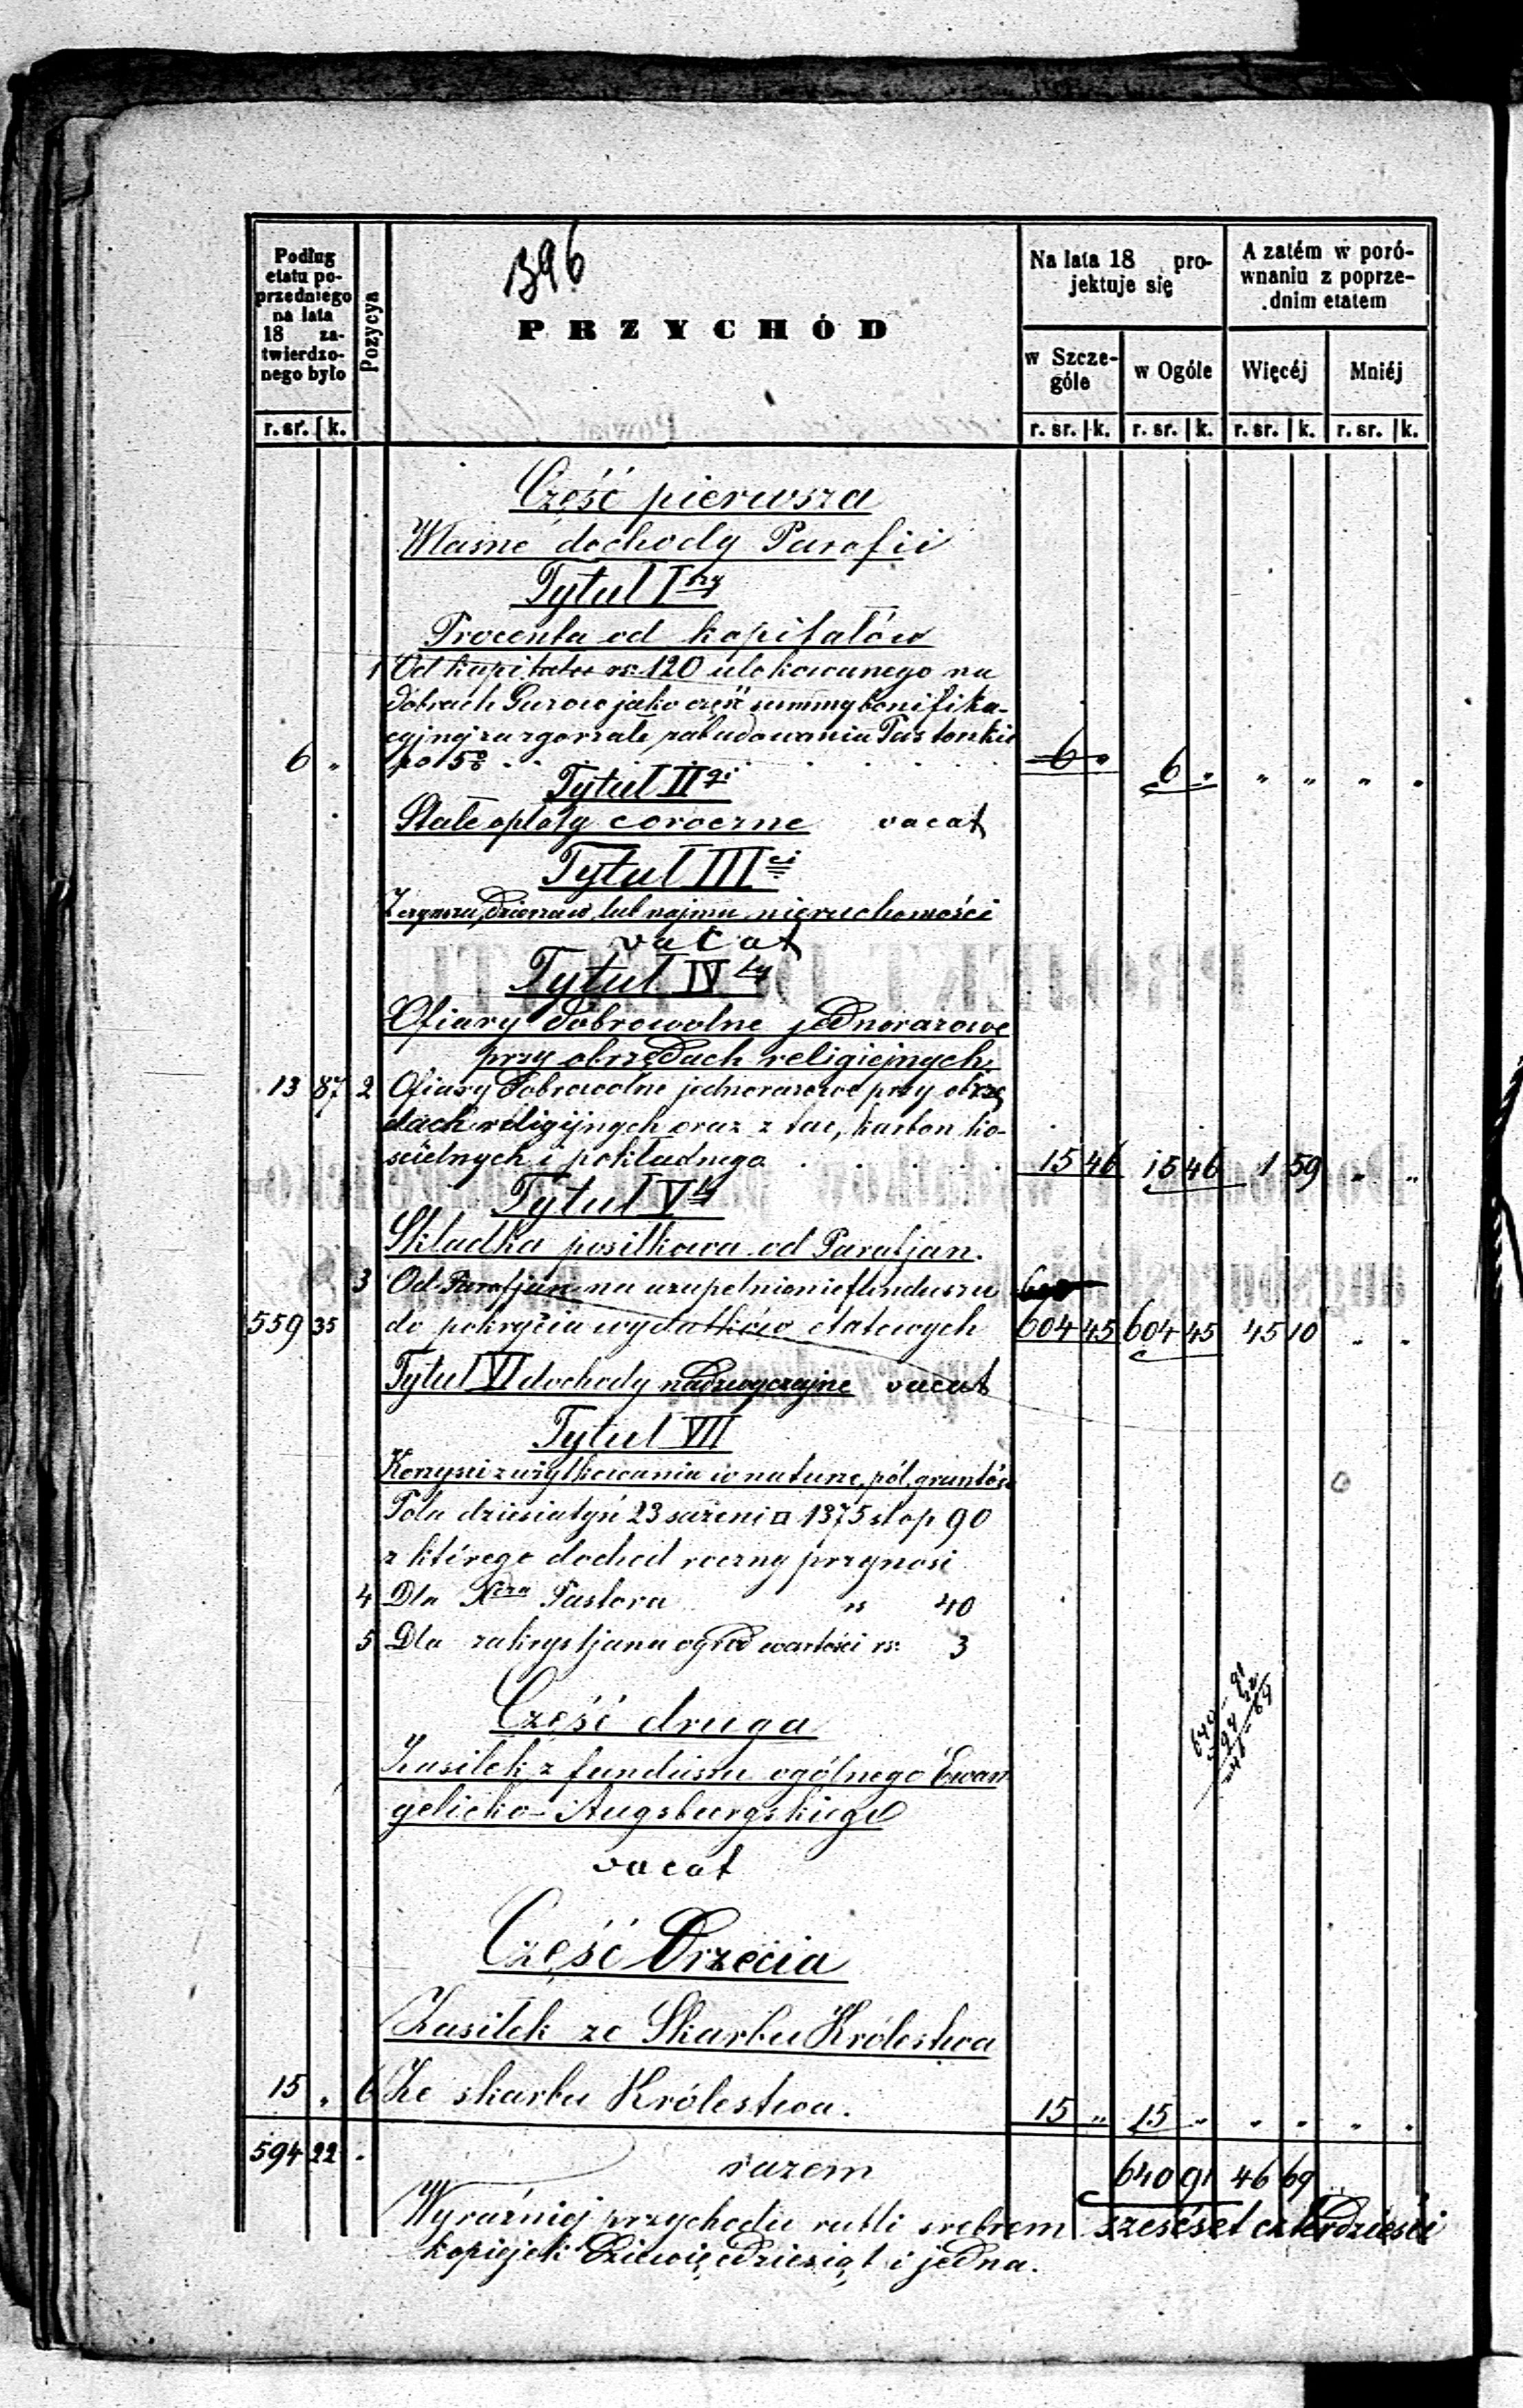 396
PRZYCHÓD
Podług
etatu po-
przedniego
na lata
18 za-
twierdzo-
nego było
r. sr. k.
Pozycya
Na lata 18 pro-
jektuje się
w Szcze-
góle
r. sr. k.
w Ogóle
r. sr. k.
A zatém w poró-
wnaniu z poprze-
dnim etatem
Więcéj
r. sr. k.
Mniéj
r. sr. k.
Część pierwsza
Własne dochody Parafii
Tytuł I szy
Procenta od kapitałów
1 Od kapitału rs. 120 ulokowanego na
dobrach Gurowo jako część summy bonifika-
cyjnej za zgorzałe zabudowania Pastorskie
6 " po 5% . . . 6 " 6 " " " " "
Tytuł II gi
Stałe opłaty coroczne vacat
Tytuł III ci
Z czynszu, dzierżaw, lub najmu nieruchomości
vacat
Tytuł IV ty
Ofiary dobrowolne jednorazowe
przy obrzędach religijnych.
13 87 2 Ofiary dobrowolne jednorazowe przy obrzę
dach religijnych oraz z tac, karbon ko-
ścielnych i pokładnego . . . 15 46 15 46 1 59 " "
Tytuł V ty
Składka posiłkowa od Parafjan.
3 Od Parafjan na uzupełnienie funduszu 600
559 35 do pokrycia wydatków etatowych 604 45 604 45 45 10 " "
Tytuł VI dochody nadzwyczajne vacat
Tytuł VII
Korzyści z użytkowania w naturze, pól, gruntów
Pola dziesiatyń 23 sażeni □ 1375 stop 90
z którego dochod roczny przynosi
4 Dla Xdza Pastora rs 40
5 Dla zakrystjana ogród wartości rs. 3
640 - 91
594 - 22
46 - 69
Część druga
Zasiłek z funduszu ogólnego Ewan
gelicko-Augsburgskiego
vacat
Część Trzecia
Zasiłek ze Skarbu Królestwa
15 " 6 Ze skarbu Królestwa. 15 " 15 " " " " "
594 22 razem 640 91 46 69
Wyraźniej przychodu rubli srebrem sześćset czterdzieści
kopiejek dziewięćdziesiąt i jedna.